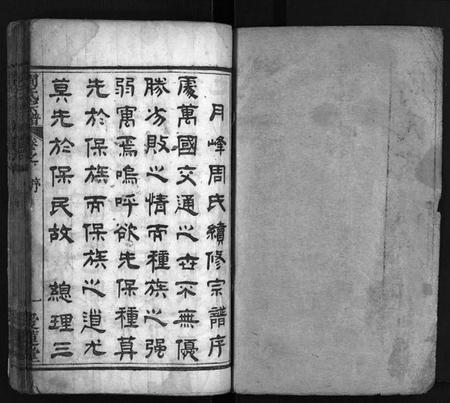 月峰周氏續修宗譜序
處萬國交通之世不無優
勝劣敗之情而種族之強
弱寓焉嗚呼欲先保種莫
先於保族而保族之道尤
莫先於保民故　總理三
周氏宗譜　卷之一　序　一　愛蓮堂